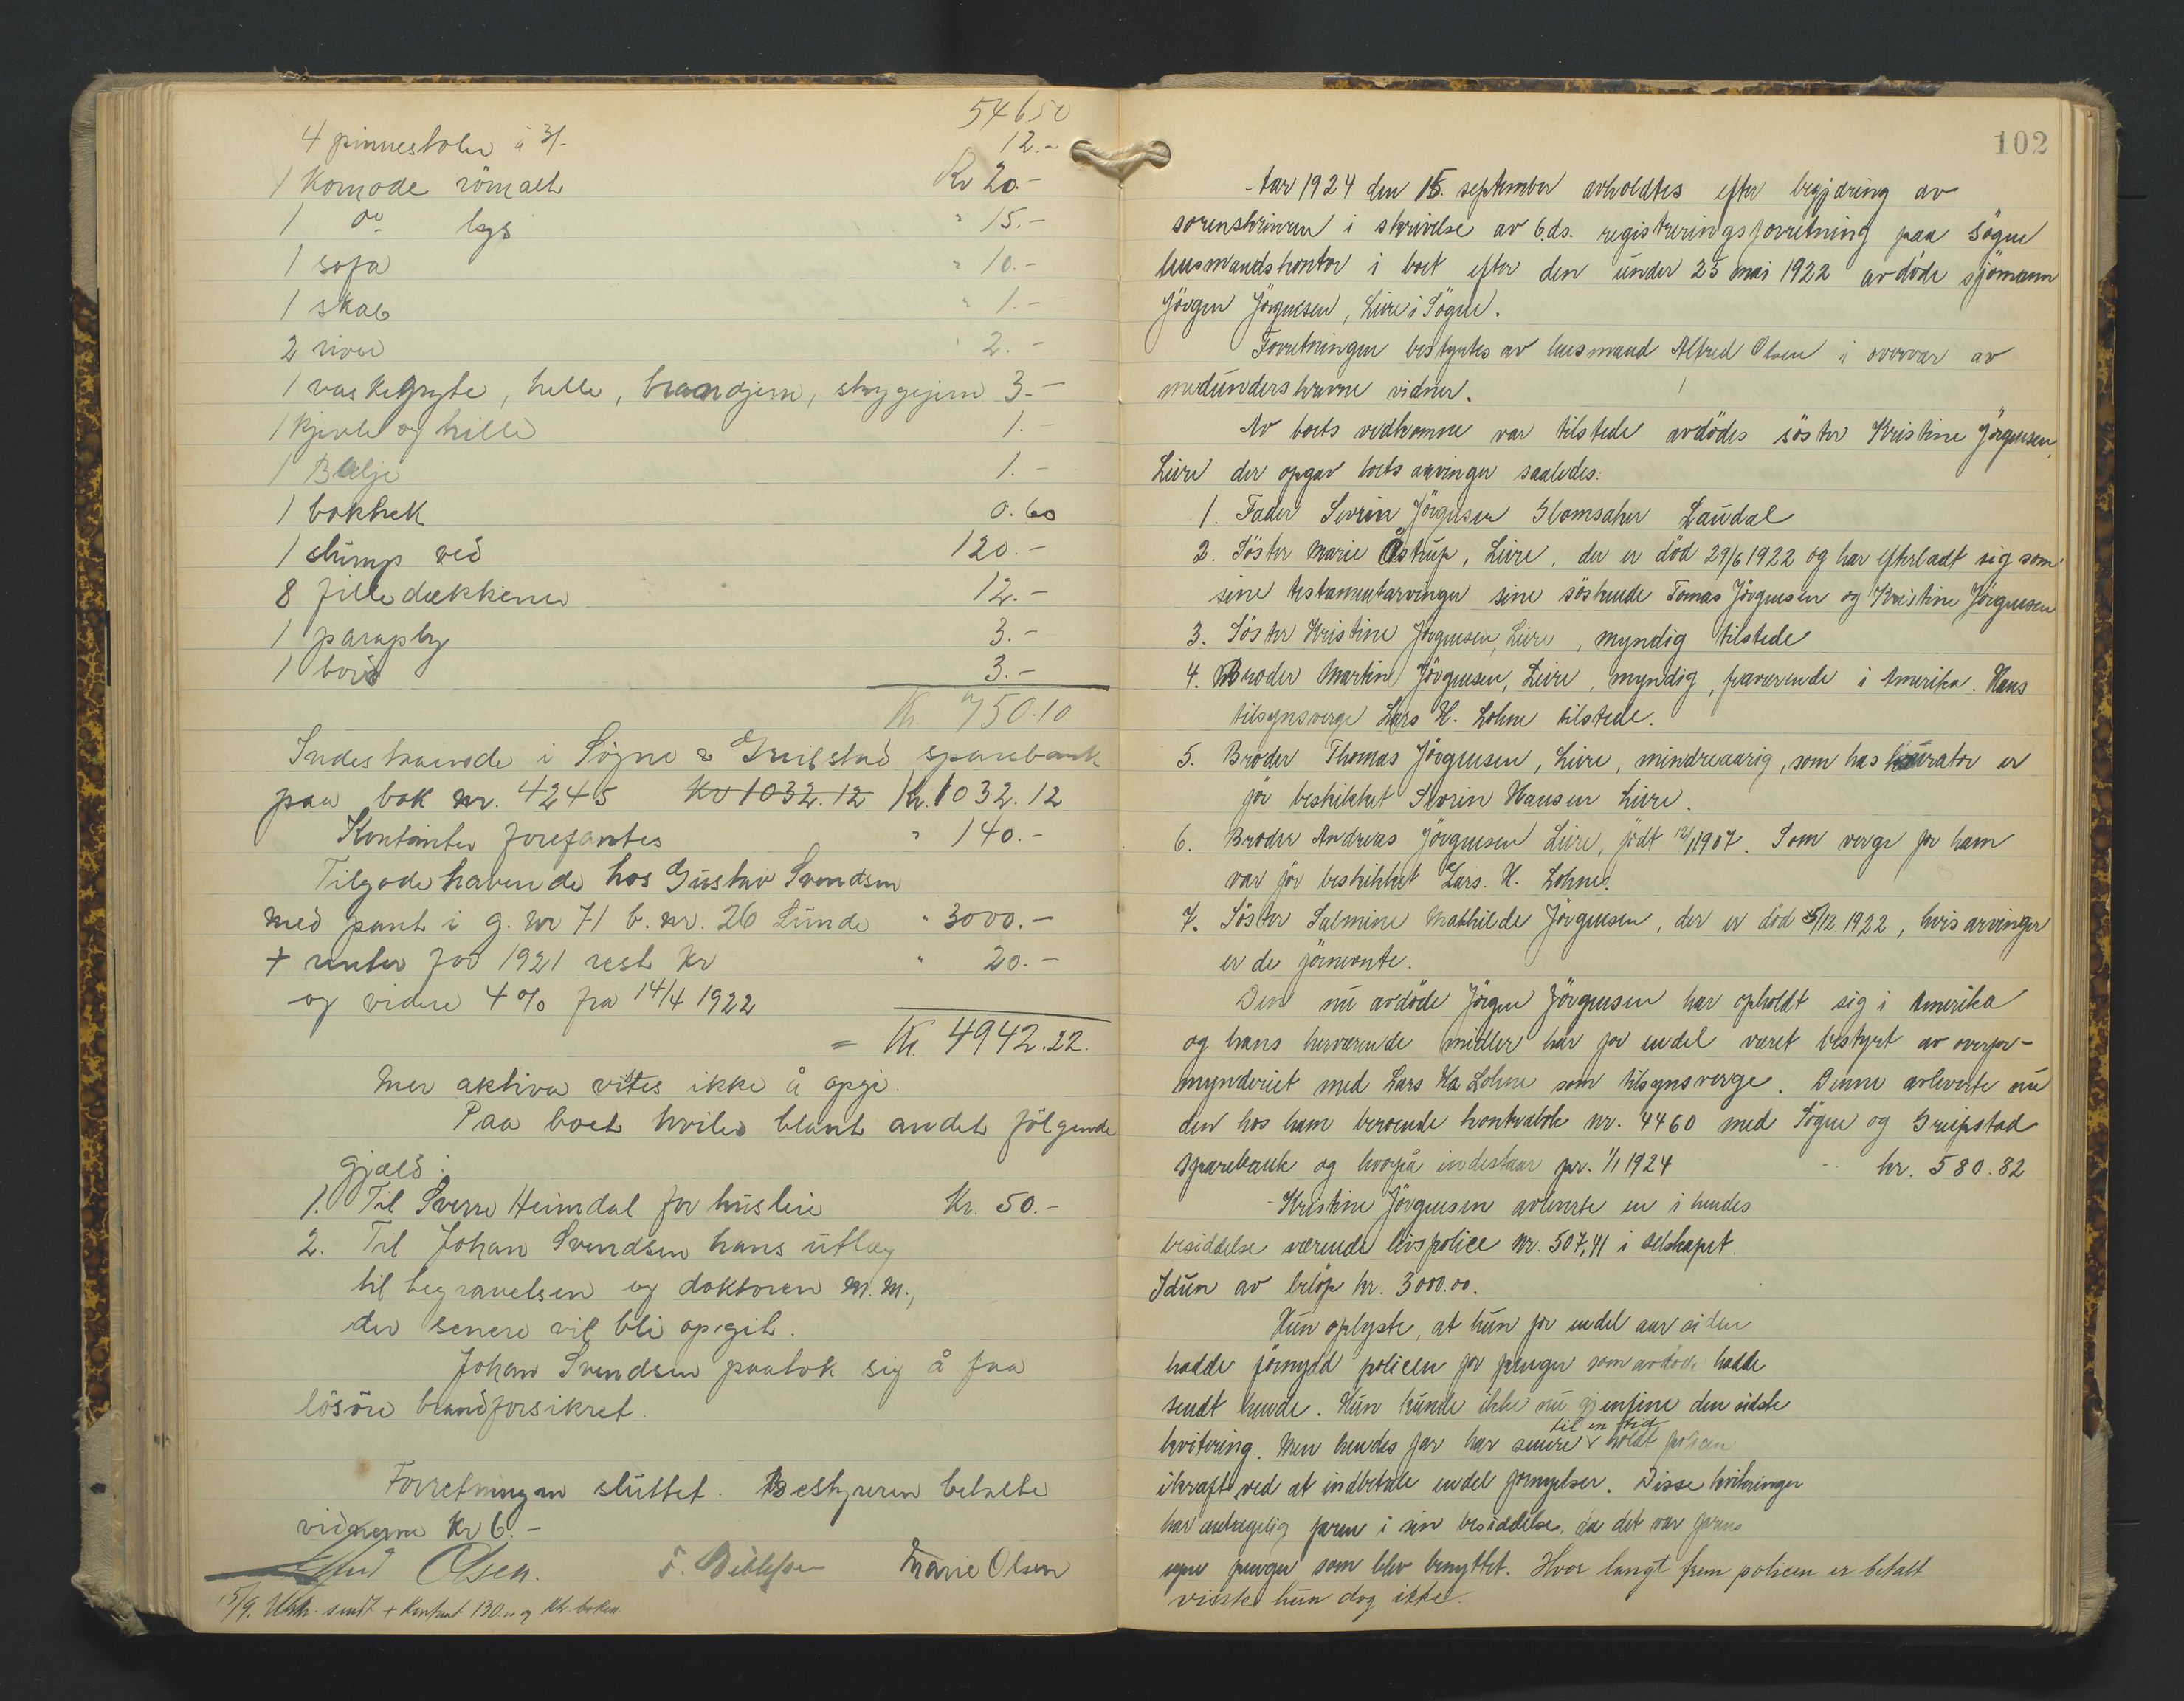 54650
4 pinnestoler à 3/- 12.-
1 Komode rømalt Kr 20.-
1 do lys " 15.-
1 sofa " 10.-
1 skab " 1.-
2 river " 2.-
1 vaskegryte, helle, brandjern, strygejern 3.-
1 kjevle og 1.-
1 Balje 1.-
1 0.60
1 slump ved 120.-
8 filledækkener 12.-
1 paraply 3.-
1 bord 3.-
Kr 750.10
Indestaaende i Søgne & Greipstad sparebank
paa bok nr. 4245 Kr 1032.12 Kr. 1032.12
Kontanter forefantes " 140.-
Tilgodehavende hos Gustav Svendsen
med pant i g. nr 71 b. nr. 26 Lunde " 3000.-
+ renter for 1921 rest Kr " 20.-
og videre 4 % fra 14/4 1922
= Kr. 4942.22.
Mer aktiva vites ikke å opgi.
Paa boet hviler blant andet følgende
gjæld:
1. Til Sverre Heimdal for husleie Kr. 50.-
2. Til Johan Svendsen hans utlæg
til begravelsen og doktoren m.m.,
der senere vil bli opgit.
Johan Svendsen paatok sig å faa
løsøre brandforsikret.
Forretningen sluttet. Bestyreren betalte
vidnerne Kr 6.-
Alfred Olsen. Marie Olsen
15/9. Utskr. sendt + Kontant 130.- og ktr. boken.
102
- Aar 1924 den 15. september avholdtes efter begjæring av
sorenskriveren i skrivelse av 6. ds. registreringsforretning paa Søgne
lensmandskontor i boet efter den under 25 mai 1922 avdøde sjømann
Jörgen Jörgensen, Leire i Søgne.
Forretningen bestyrtes av lensmand Alfred Olsen i overvær av
medunderskrevne vidner.
Av boets vedkomne var tilstede avdødes søster Kristine Jörgensen,
Leire der opgav boets arvinger saaledes:
1. Fader Severin Jörgensen Laudal
2. Søster Marie Åstrup, Leire, der er død 29/6 1922 og har efterladt sig som
sine testamentarvinger sine søskende Tomas Jörgensen og Kristine Jörgensen
3. Søster Kristine Jörgensen, Leire, myndig tilstede
4. Broder Martin Jörgensen, Leire, myndig, fraværende i Amerika. Hans
tilsynsverge Lars H. Lohne tilstede.
5. Broder Thomas Jörgensen, Leire, mindreaarig, som hvis kurator er
før beskikket Severin Hansen Leire.
6. Broder Andreas Jörgensen Leire, født 12/1 1907. Som verge for ham
var før beskikket Lars. H. Lohne.
7. Søster Salmine Mathilde Jörgensen, der er død 5/12. 1922, hvis arvinger
er de førnevnte.
Den nu avdøde Jörgen Jörgensen har opholdt sig i Amerika
og hans herværende midler har for endel været bestyrt av overfor-
mynderiet med Lars Ha Lohne som tilsynsverge. Denne avleverte nu
den hos ham beroende kontrabok nr. 4460 med Søgne og Greipstad
sparebank og hvorpå indestaar pr. 1/1 1924 kr. 580.82
- Kristine Jörgensen avleverte en i hendes
besiddelse værende livspolice nr. 507,41 i selskapet
Idun av beløp kr. 3000.00.
Hun oplyste, at hun for endel aar siden
hadde fornyed policen for penger som avdøde hadde
sendt hende. Hun kunde ikke nu gjenfine den sidste
kvitering. Men hendes far har senere til en tid holdt policen
ikraft ved at indbetale endel fornyelser. Disse kviteringer
har antagelig faren i sin besiddelse, da det var farens
egne penger som blev benyttet. Hvor langt frem policen er betalt
visste hun dog ikke.